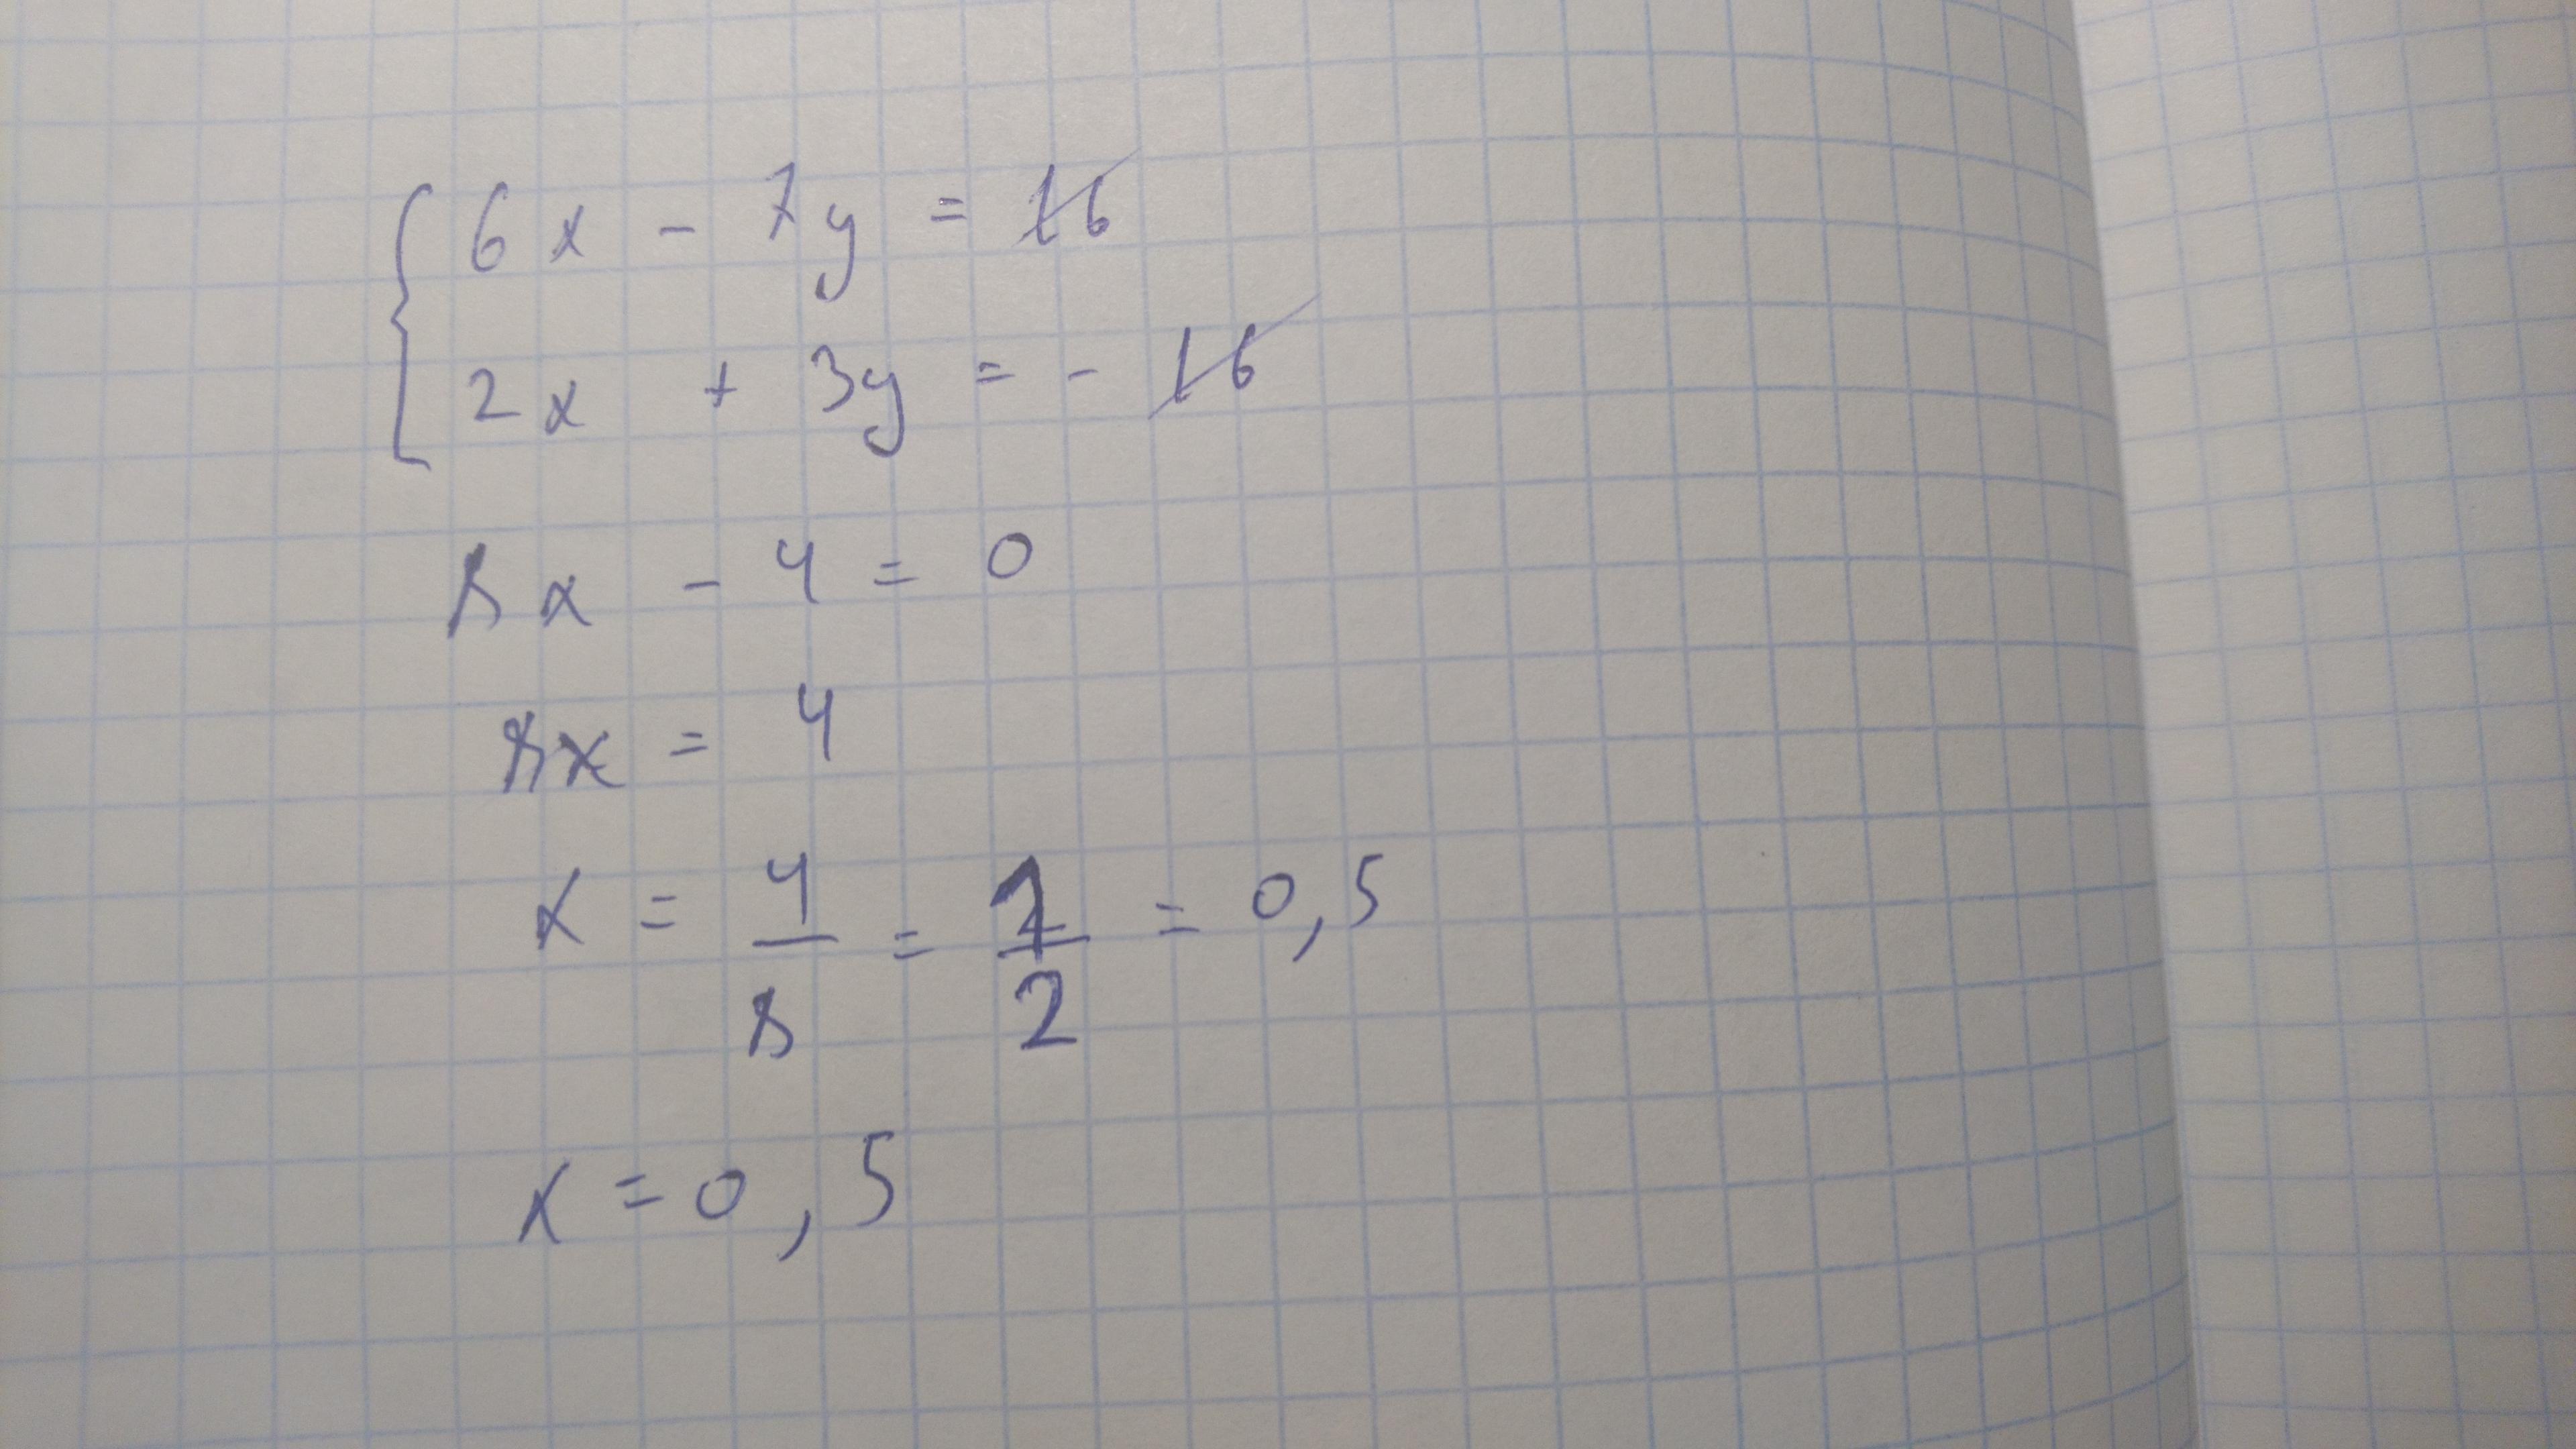 6x - 7y = 16
2x + 3y = - 16
8x - 4 = 0
8x = 4
x = 4/8 = 1/2 = 0,5
x = 0,5